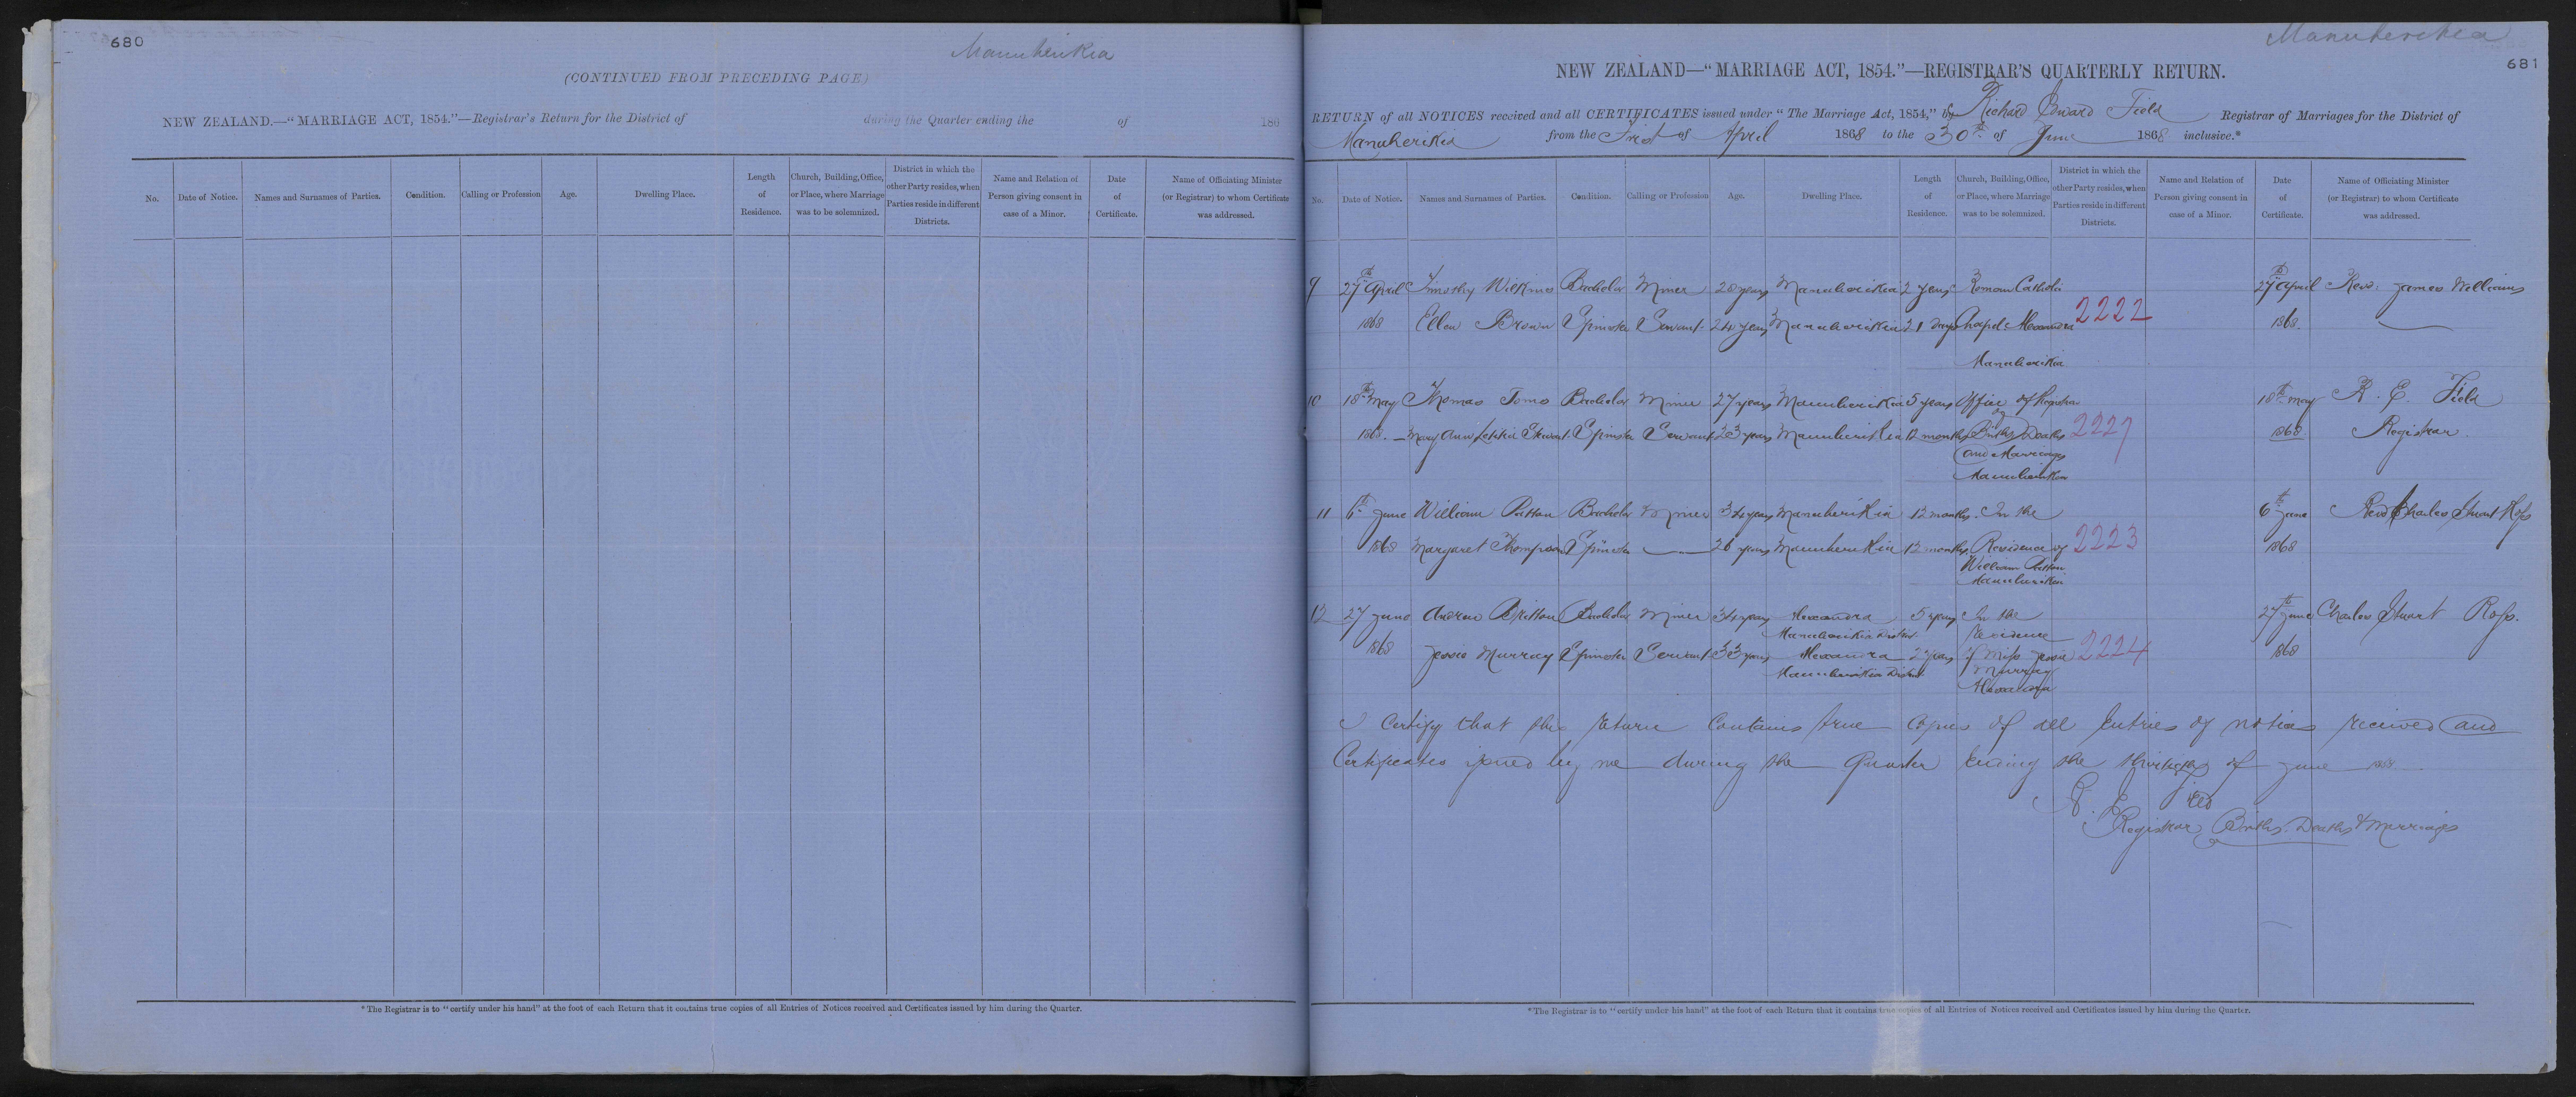 680
Manuherikia
(CONTINUED FROM PRECEDING PAGE)
NEW ZEALAND.—"MARRIAGE ACT, 1854."—Registrar's Return for the District of during the Quarter ending the of 186
No. Date of Notice. Names and Surnames of Parties. Condition. Calling or Profession Age. Dwelling Place. Length of Residence. Church, Building, Office, or Place, where Marriage was to be solemnized. District in which the other Party resides, when Parties reside in different Districts. Name and Relation of Person giving consent in case of a Minor. Date of Certificate. Name of Officiating Minister (or Registrar) to whom Certificate was addressed.
*The Registrar is to "certify under his hand" at the foot of each Return that it contains true copies of all Entries of Notices received and Certificates issued by him during the Quarter.
Manuherikia
681
NEW ZEALAND—"MARRIAGE ACT, 1854."—REGISTRAR'S QUARTERLY RETURN.
RETURN of all NOTICES received and all CERTIFICATES issued under "The Marriage Act, 1854," by Richard Edward Field Registrar of Marriages for the District of
Manuherikia from the First of April 1868 to the 30th of June 1868 inclusive.*
No. Date of Notice. Names and Surnames of Parties. Condition. Calling or Profession Age. Dwelling Place. Length of Residence. Church, Building, Office, or Place, where Marriage was to be solemnized. District in which the other Party resides, when Parties reside in different Districts. Name and Relation of Person giving consent in case of a Minor. Date of Certificate. Name of Officiating Minister (or Registrar) to whom Certificate was addressed.
9 27th April Timothy Wilkins Bachelor Miner 28 years Manuherikia 2 years Roman Catholic 27th April Revd. James Williams
1868 Ellen Brown Spinster Servant 24 years Manuherikia 21 days Chapel Alexandra 2222 1868
Manuherikia
10 18th May Thomas Toms Bachelor Miner 27 years Manuherikia 5 years Office of Registrar 18th May R. E. Field
1868. Mary Ann Letitia Stewart Spinster Servant 23 years Manuherikia 12 months of Births Deaths 2227 1868 Registrar
and Marriages
Manuherikia
11 6th June William Patton Bachelor Miner 34 years Manuherikia 12 months In the 6th June Revd Charles Stuart Ross
1868 Margaret Thompson Spinster 26 years Manuherikia 12 months Residence of 2223 1868
William Patton
Manuherikia
12 27 June Andrew Britton Bachelor Miner 34 years Alexandra 5 years In the 27th June Charles Stuart Ross.
Manuherikia District Residence
1868 Jessie Murray Spinster Servant 33 years Alexandra 2 years of Miss Jessie 2224 1868
Manuherikia District Murray
Alexandra
I Certify that this return Contains true Copies of all Entries of notices received and
Certificates issued by me during the Quarter Ending the thirtieth of June 1868
R. E. Field
Registrar Births Deaths & Marriages
*The Registrar is to "certify under his hand" at the foot of each Return that it contains true copies of all Entries of Notices received and Certificates issued by him during the Quarter.